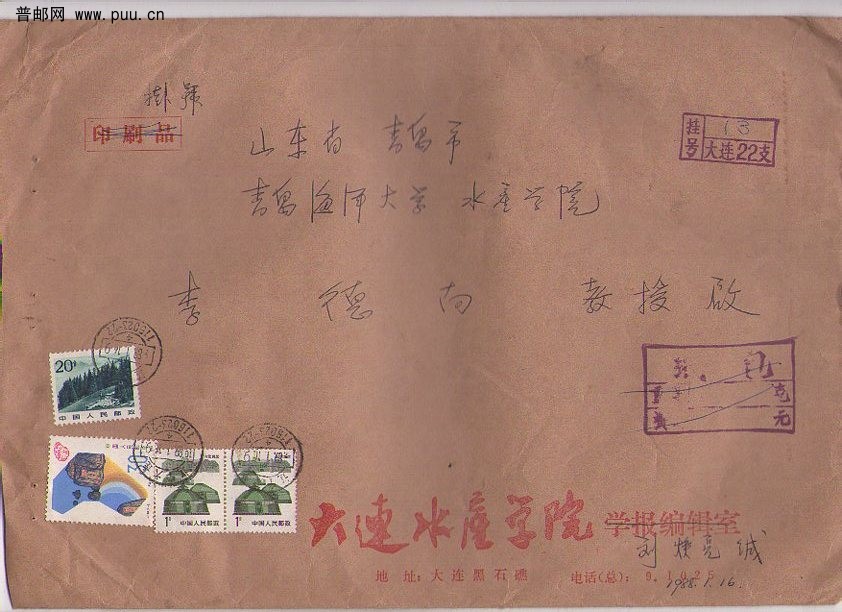 普邮网 www.puu.cn
挂號
印刷品
挂号 13
大连22支
山东省 青岛市
青岛海洋大学 水产学院
李 德尚 教授 啟
克
元
20分
中国人民邮政
20
1分 中国人民邮政
1分 中国人民邮政
大连水产学院 学报编辑室
刘焕亮 缄
地 址：大连黑石礁 电话(总)：
1988.1.16.